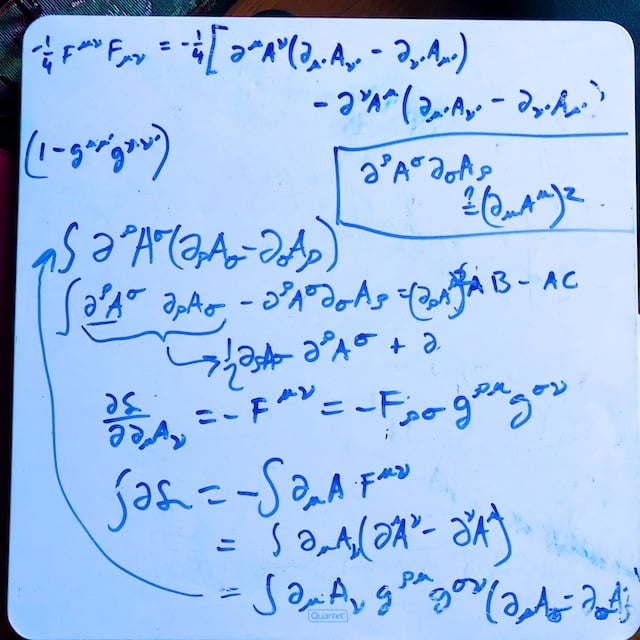 -1/4 F^{μν} F_{μν} = -1/4 [ ∂^μ A^ν (∂_{μ'} A_{ν'} - ∂_{ν'} A_{μ'})
- ∂^ν A^μ (∂_{μ'} A_{ν'} - ∂_{ν'} A_{μ'})
(1 - g^{μμ'} g^{νν'})
∂^ρ A^σ ∂_σ A_ρ
?= (∂_μ A^μ)^2
∫ ∂^ρ A^σ (∂_ρ A_σ - ∂_σ A_ρ)
∫ ∂^ρ A^σ ∂_ρ A_σ - ∂^ρ A^σ ∂_σ A_ρ = AB - AC
→ 1/2 ∂^ρ A^σ + ∂
∂ℒ/∂∂_μ A_ν = - F^{μν} = - F_{ρσ} g^{ρμ} g^{σν}
∫ ∂ℒ = - ∫ ∂_μ A F^{μν}
= ∫ ∂_μ A_ν (∂^μ A^ν - ∂^ν A^μ)
= ∫ ∂_μ A_ν g^{ρμ} g^{σν} (∂_ρ A_σ - ∂_σ A_ρ
Quartet